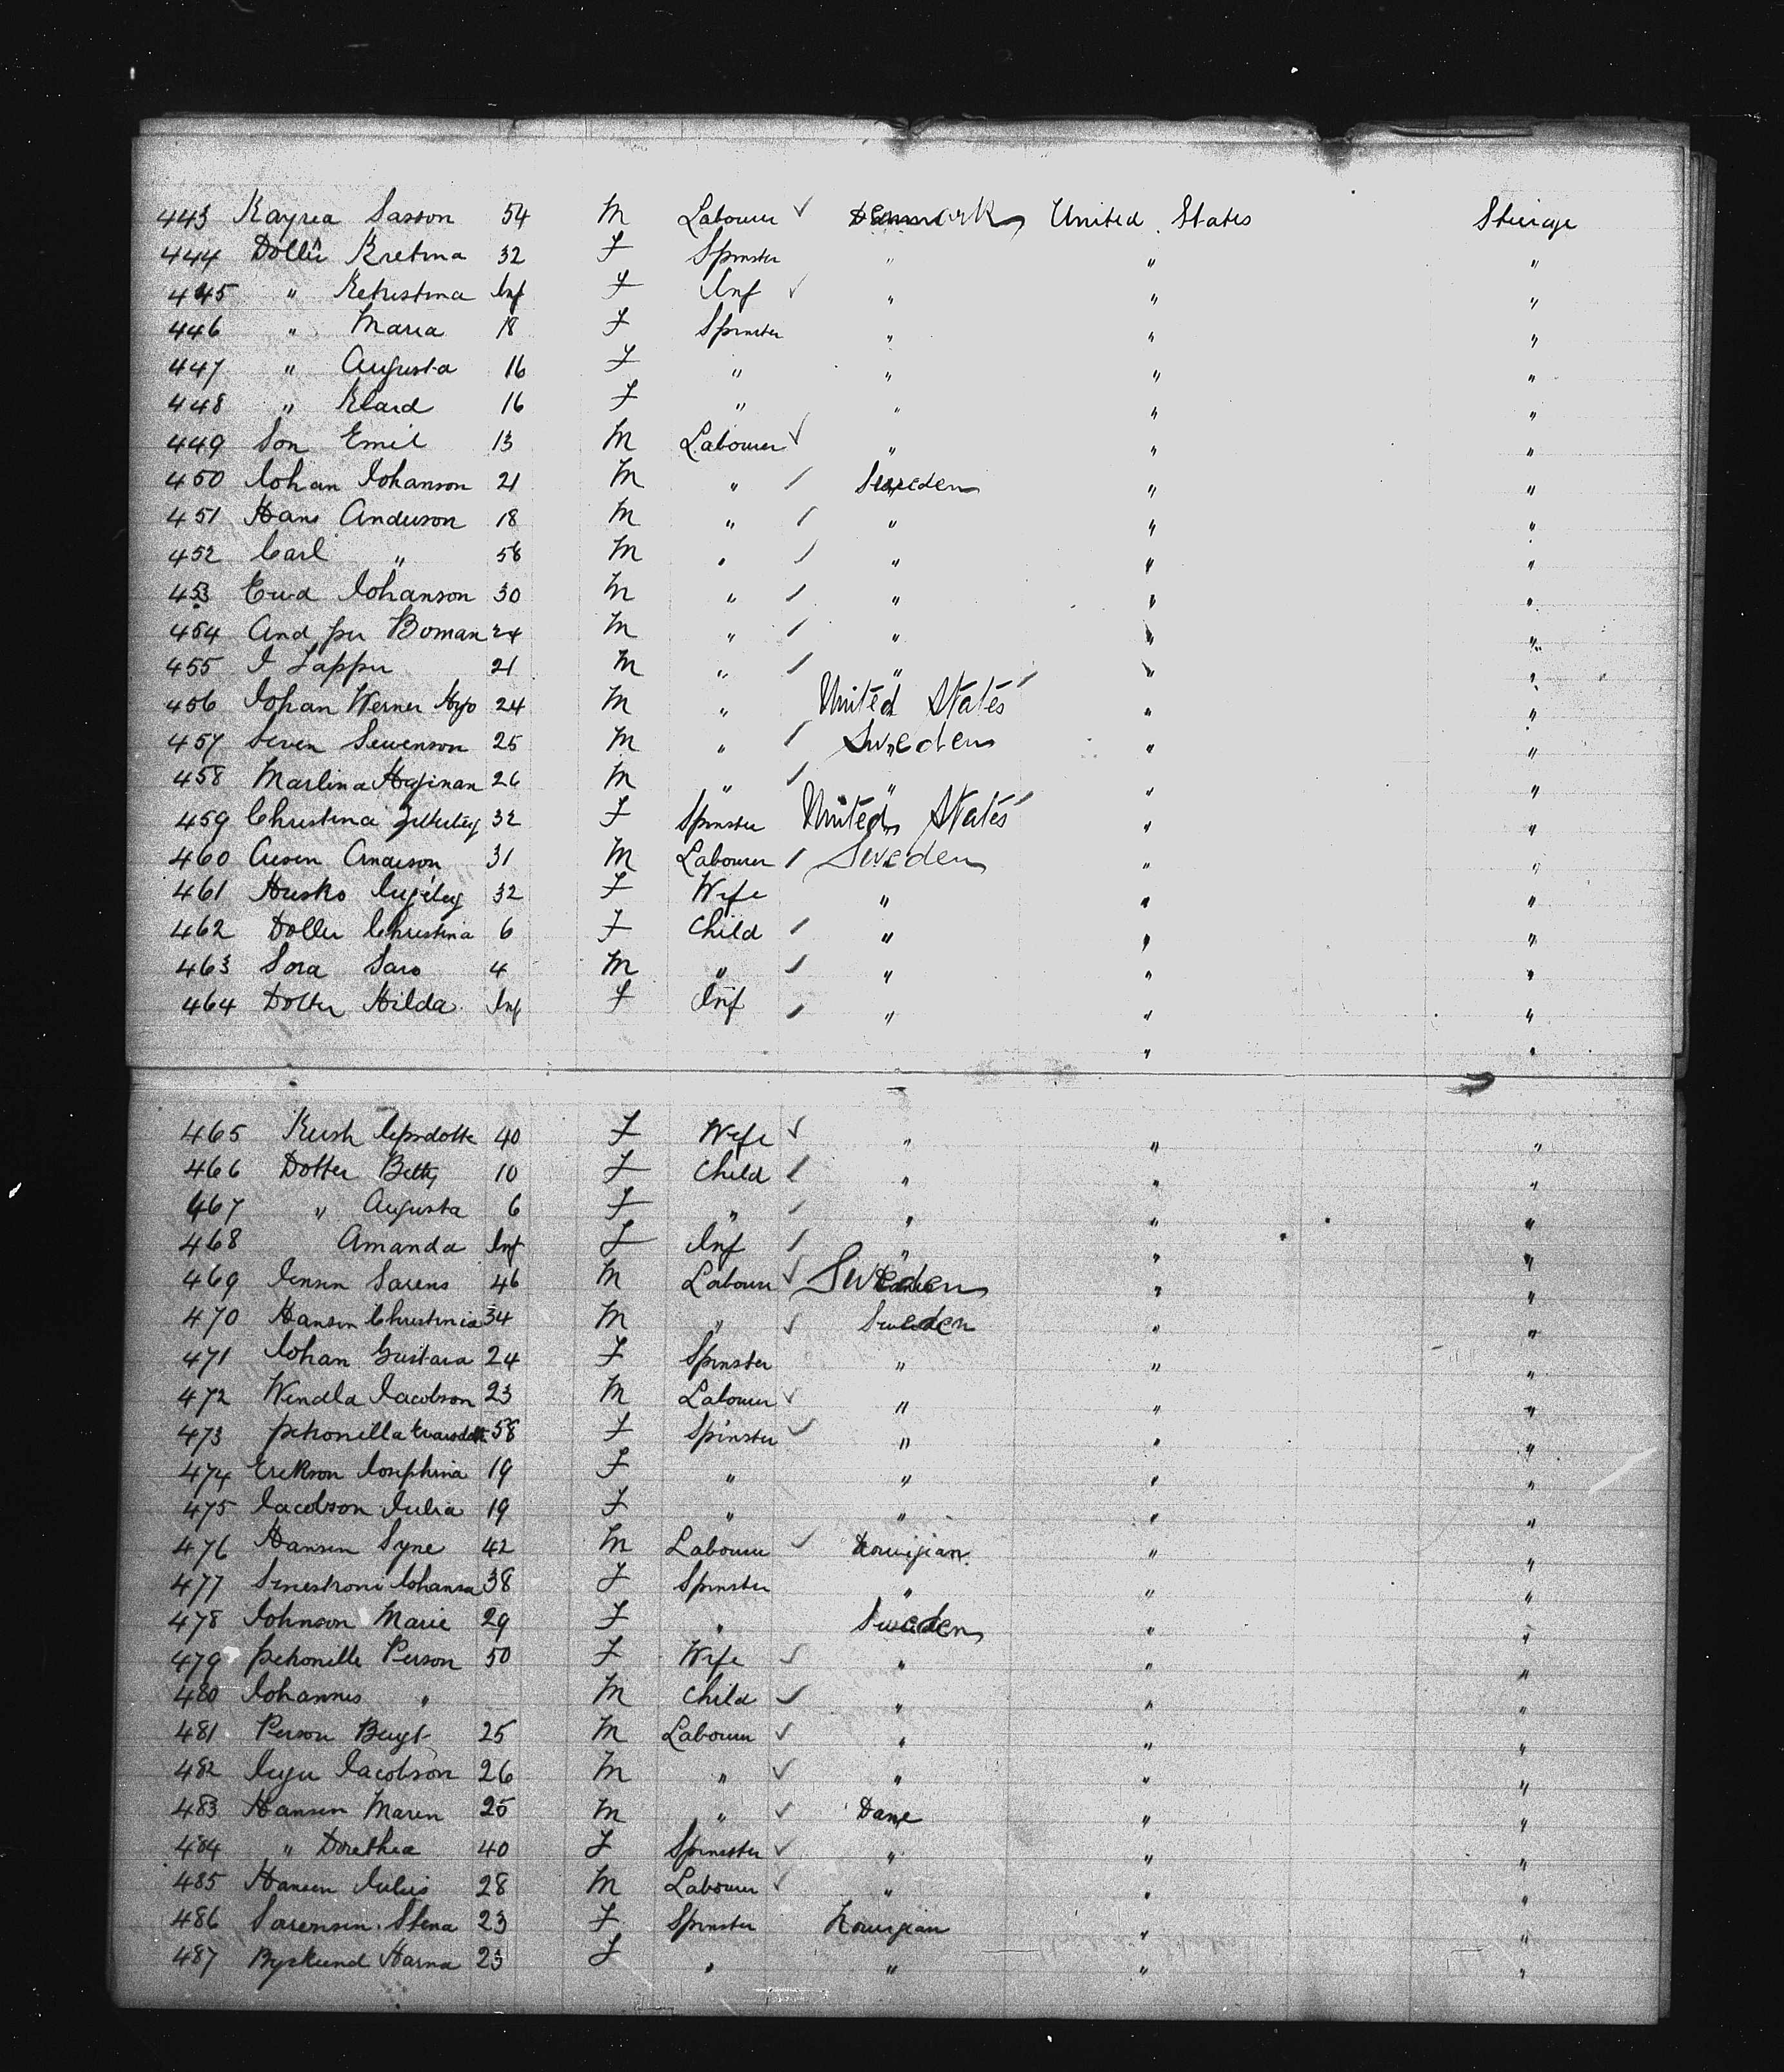 443 Kayrea Sasson 54 M Labourer ✓ Denmark United States Steerage
444 Dotter Kretina 32 F Spinster " " "
445 " Kekristina Inf F Inf ✓ " " "
446 " Maria 18 F Spinster " " "
447 " Augusta 16 F " " " "
448 " Klard 16 F " " " "
449 Son Emil 13 M Labourer ✓ " " "
450 Johan Johanson 21 M " / Sweden " "
451 Hans Anderson 18 M " / " " "
452 Carl " 56 M " / " " "
453 Johanson 30 M " / " " "
454 And per Boman 24 M " / " " "
455 J Lapper 21 M " / " " "
456 Johan Werner Hyo 24 M " United States " "
457 Seven Swenson 25 M " / Sweden " "
458 Marlina Haginan 26 M " / " " "
459 Christina 32 F Spinster United States " "
460 Anderson 31 M Labourer / Sweden " "
461 Husko 32 F Wife " " "
462 Dotter Christina 6 F Child / " " "
463 Sora Saro 4 M " / " " "
464 Dotter Hilda Inf F Inf / " " "
" "
465 Kersh 40 F Wife ✓ " " "
466 Dotter Betty 10 F Child / " " "
467 " Augusta 6 F " / " " "
468 Amanda Inf F Inf / " " "
469 Jensen Sarens 46 M Labourer ✓ Sweden " "
470 Hansen Christinia 34 M " ✓ Sweden " "
471 Johan Gustava 24 F Spinster " " "
472 Wendla Jacobson 23 M Labourer ✓ " " "
473 petronella 58 F Spinster ✓ " " "
474 Erekson Josephina 19 F " " " "
475 Jacobson Julia 19 F " " " "
476 Hansen Syne 42 M Labourer ✓ Norwigian " "
477 Johansa 38 F Spinster " " "
478 Johnson Marie 29 F " Sweden " "
479 petronelle Person 50 F Wife ✓ " " "
480 Johannes " M Child ✓ " " "
481 Person Bengt 25 M Labourer ✓ " " "
482 Jacobson 26 M " ✓ " " "
483 Hansen Maren 25 M " ✓ Dane " "
484 " Dorethea 40 F Spinster ✓ " " "
485 Hansen Julius 28 M Labourer ✓ " " "
486 Sorensen Stena 23 F Spinster Norwigian " "
487 Byslund Harna 23 F " " " "